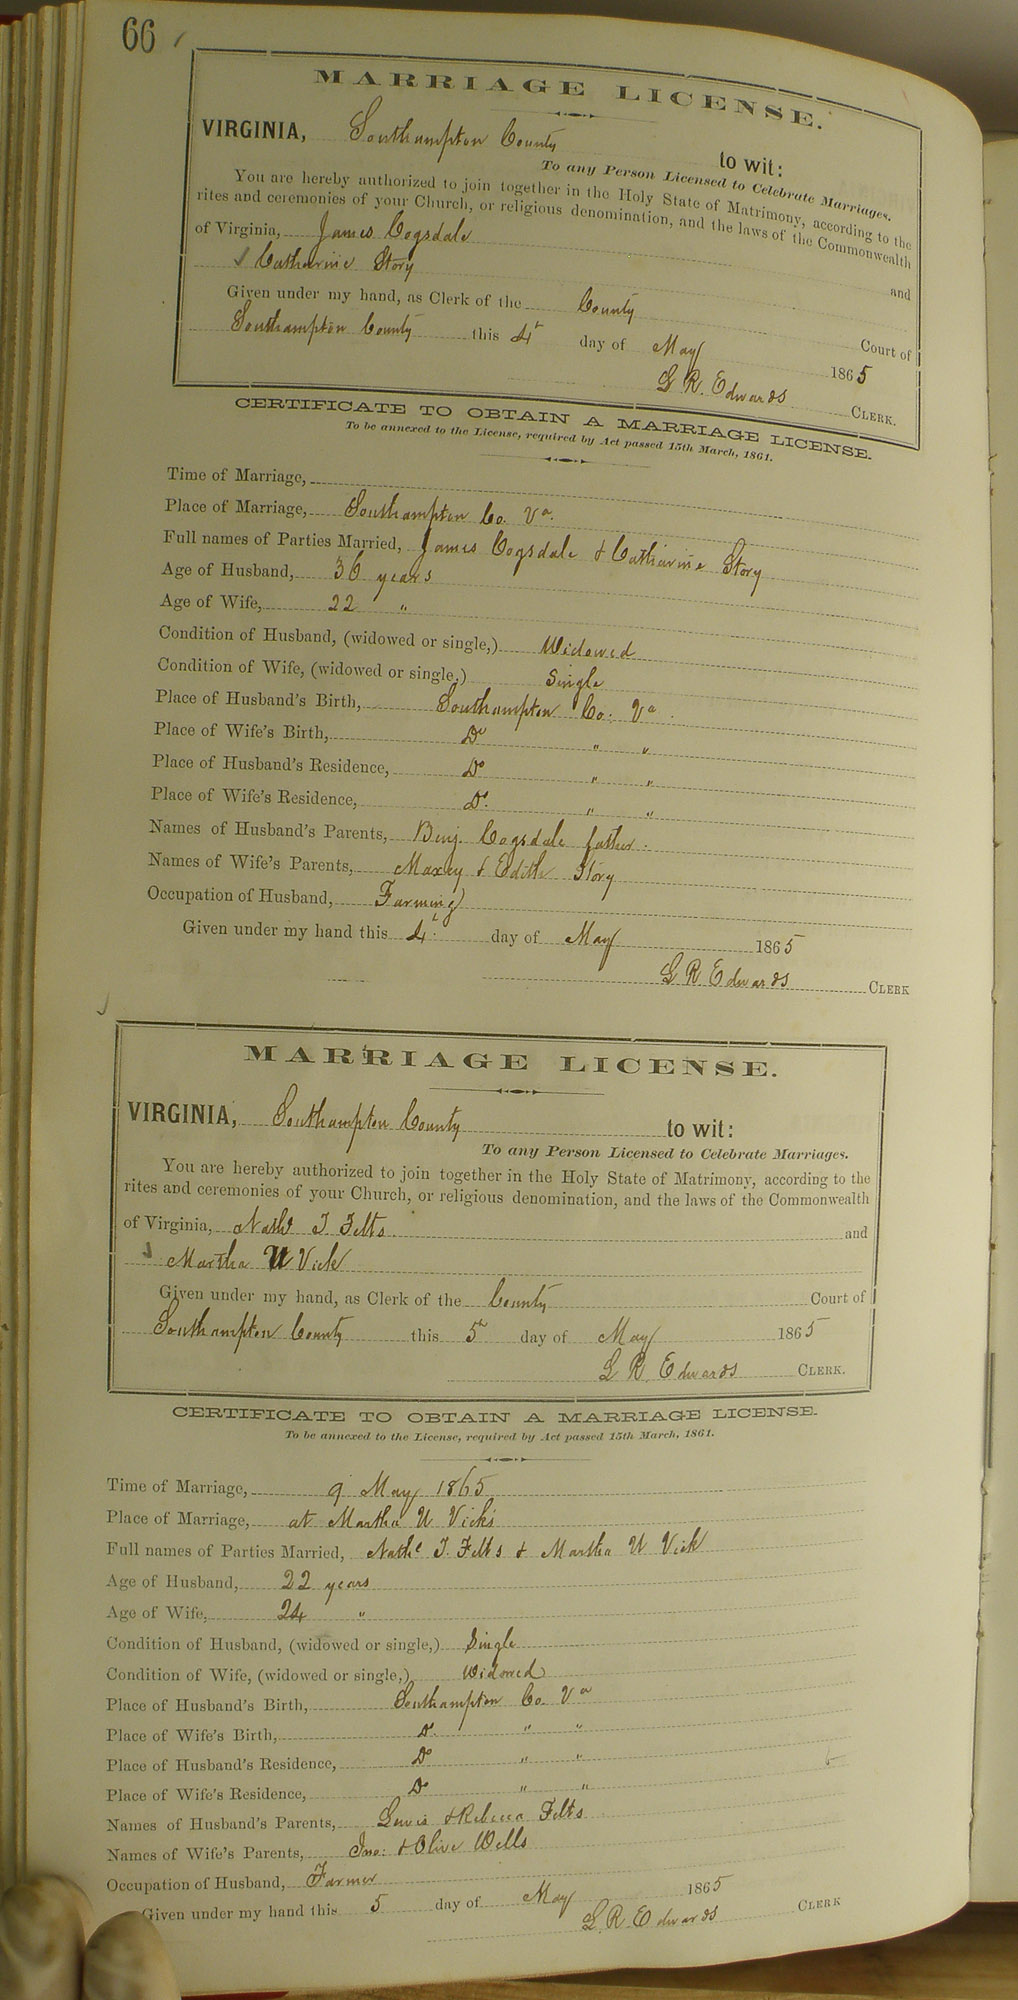 66
MARRIAGE LICENSE.
VIRGINIA, Southampton County to wit:
To any Person Licensed to Celebrate Marriages.
You are hereby authorized to join together in the Holy State of Matrimony, according to the
rites and ceremonies of your Church, or religious denomination, and the laws of the Commonwealth
of Virginia, James Cogsdale and
Catharine Story
Given under my hand, as Clerk of the County Court of
Southampton County this 4th day of May 1865
L R. Edwards CLERK.
CERTIFICATE TO OBTAIN A MARRIAGE LICENSE.
To be annexed to the License, required by Act passed 15th March, 1861.
Time of Marriage,
Place of Marriage, Southampton Co. Va.
Full names of Parties Married, James Cogsdale & Catharine Story
Age of Husband, 36 years
Age of Wife, 22 "
Condition of Husband, (widowed or single,) Widowed
Condition of Wife, (widowed or single,) Single
Place of Husband's Birth, Southampton Co. Va.
Place of Wife's Birth, Do " "
Place of Husband's Residence, Do " "
Place of Wife's Residence, Do " "
Names of Husband's Parents, Benj. Cogsdale father.
Names of Wife's Parents, Maxey & Edith Story
Occupation of Husband, Farming
Given under my hand this 4th day of May 1865
L R Edwards CLERK
MARRIAGE LICENSE.
VIRGINIA, Southampton County to wit:
To any Person Licensed to Celebrate Marriages.
You are hereby authorized to join together in the Holy State of Matrimony, according to the
rites and ceremonies of your Church, or religious denomination, and the laws of the Commonwealth
of Virginia, Nathl T Felts and
Martha U Vick
Given under my hand, as Clerk of the County Court of
Southampton County this 5th day of May 1865
L R. Edwards CLERK.
CERTIFICATE TO OBTAIN A MARRIAGE LICENSE.
To be annexed to the License, required by Act passed 15th March, 1861.
Time of Marriage, 9 May 1865
Place of Marriage, at Martha U Vicks
Full names of Parties Married, Nathl T. Felts & Martha U Vick
Age of Husband, 22 years
Age of Wife, 24 "
Condition of Husband, (widowed or single,) Single
Condition of Wife, (widowed or single,) Widowed
Place of Husband's Birth, Southampton Co. Va
Place of Wife's Birth, Do " "
Place of Husband's Residence, Do " "
Place of Wife's Residence, Do " "
Names of Husband's Parents, Lewis & Rebecca Felts
Names of Wife's Parents, Jno: & Olive Wells
Occupation of Husband, Farmer
Given under my hand this 5 day of May 1865
L. R. Edwards CLERK